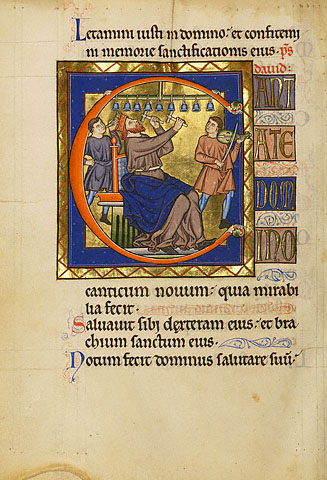 Letamini iusti in domino: et confitemi
ni memorie sanctificationis eius. ps
dauid.
C
ANT
ATE
DOM
INO
canticum nouum: quia mirabi
lia fecit.
Saluauit sibi dextera eius: et bra
chium sanctum eius.
Notum fecit dominus salutare suu: